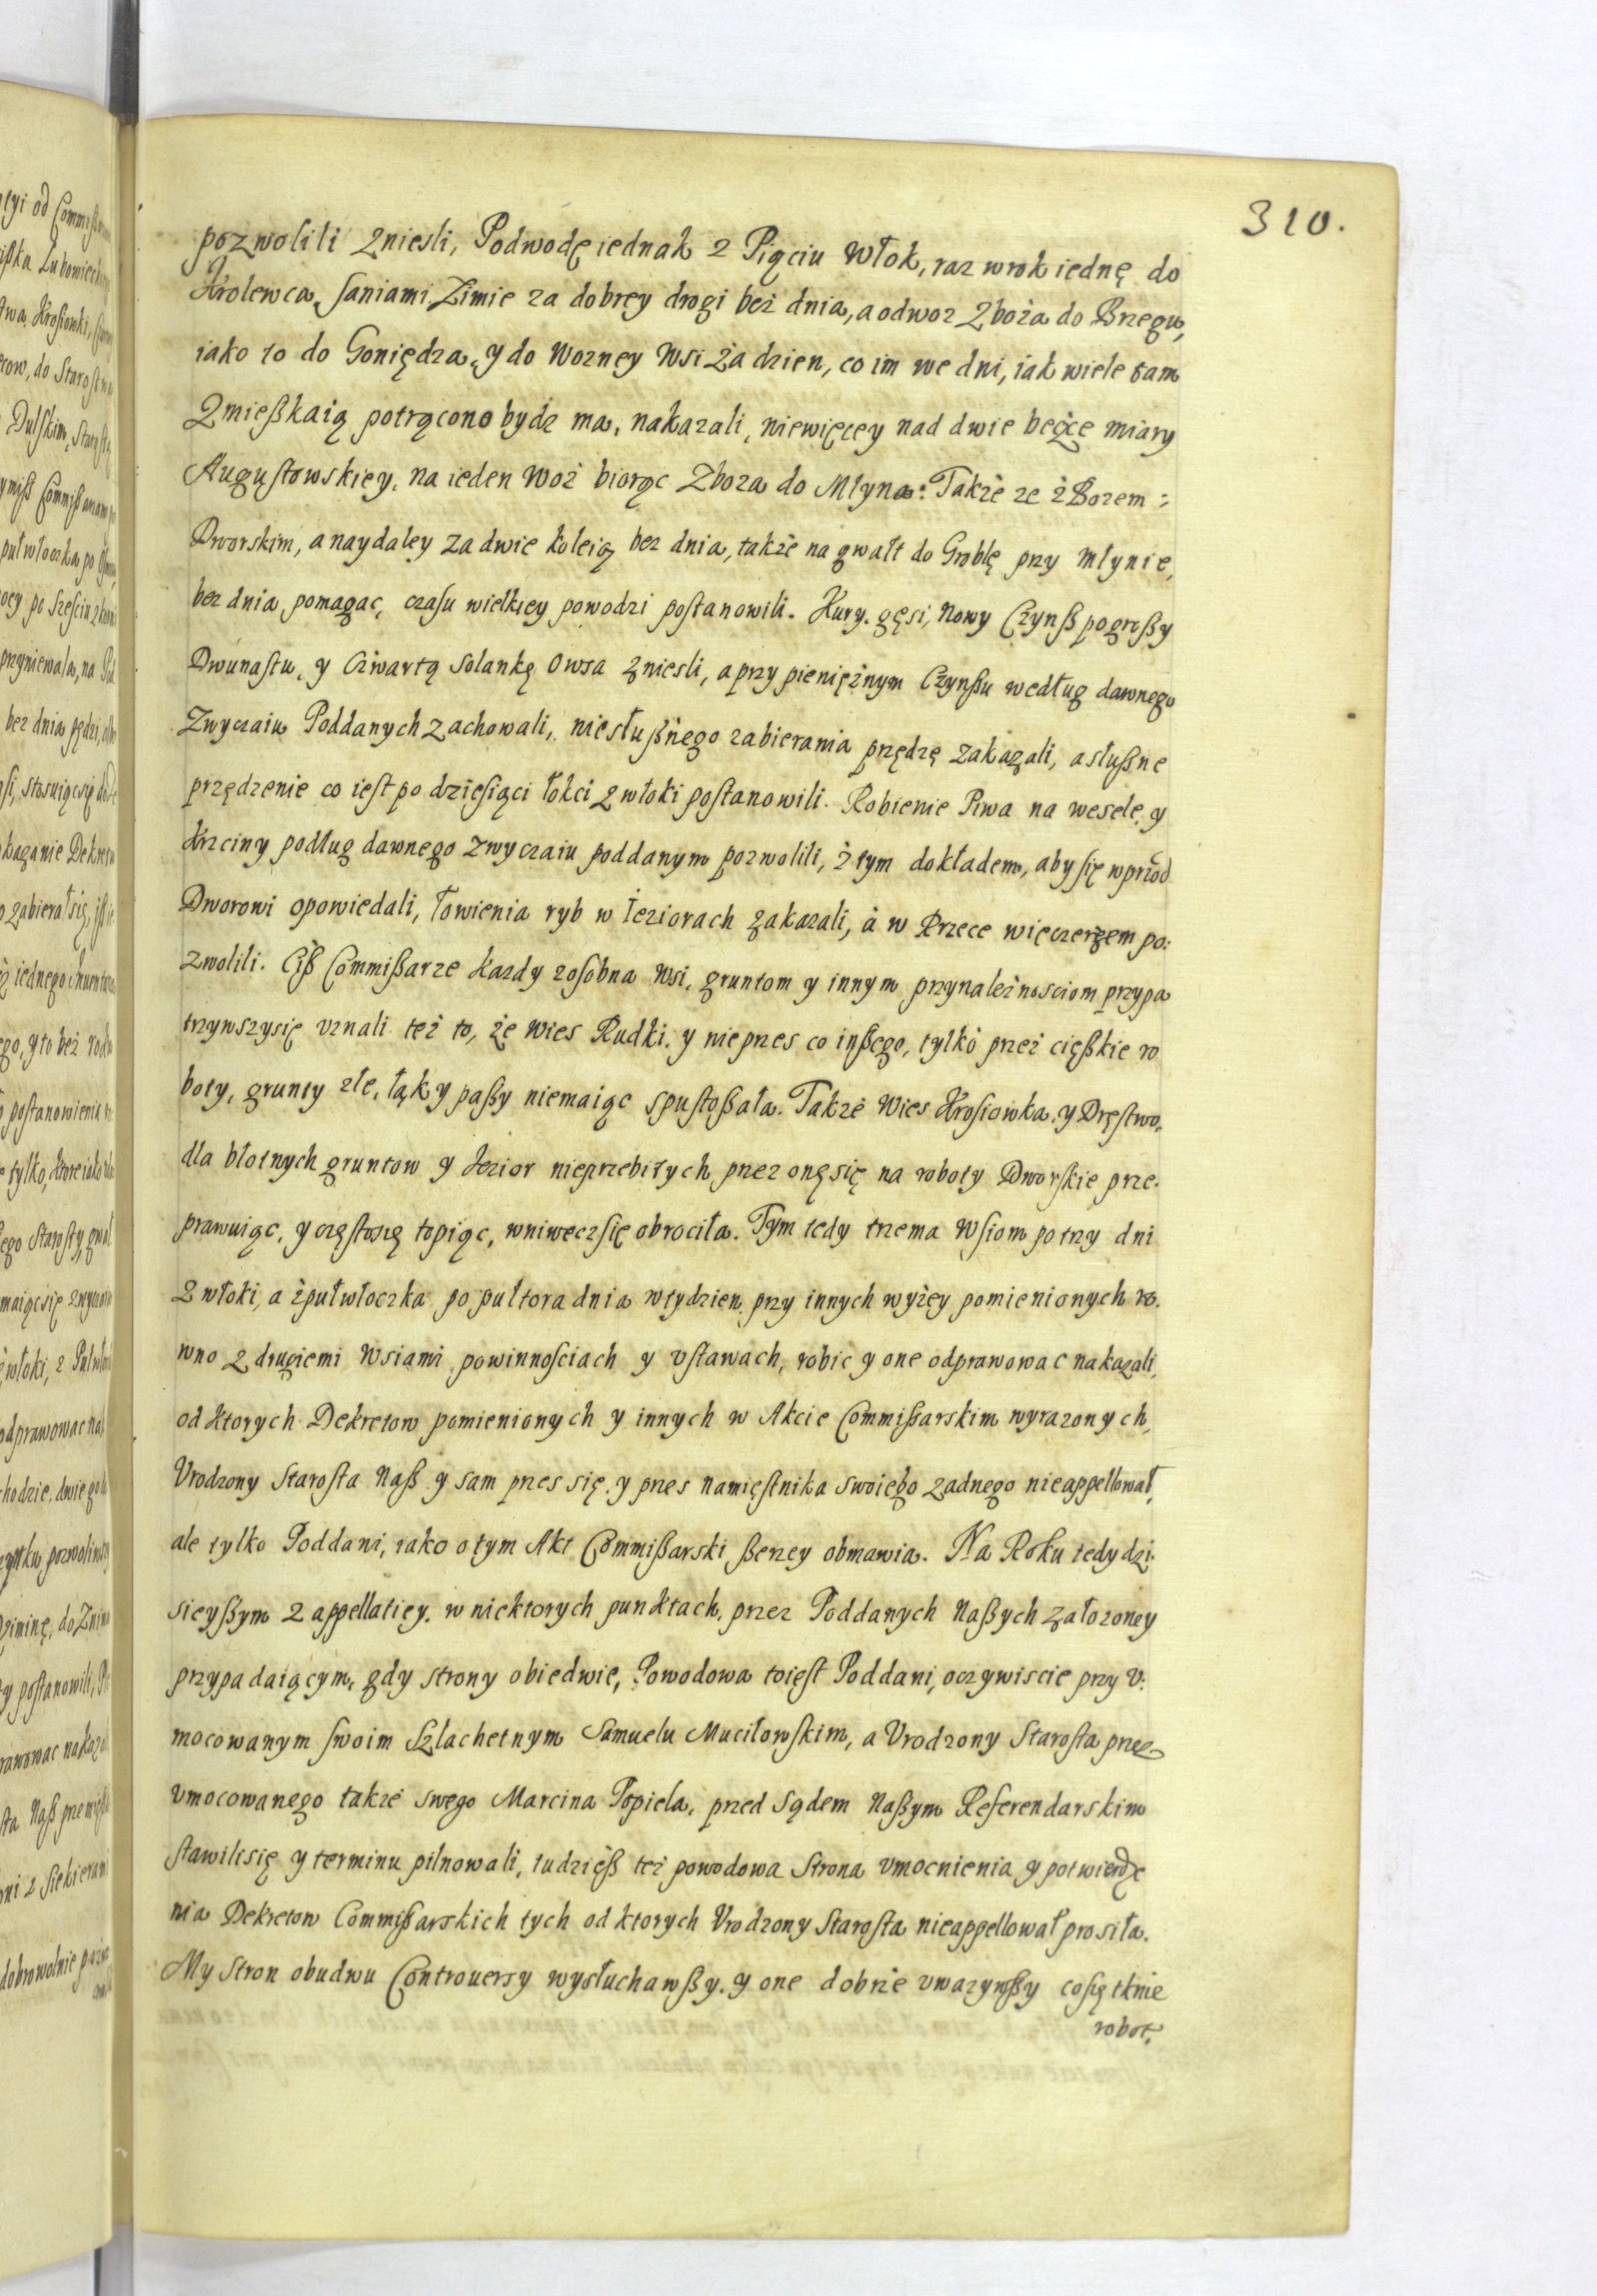 310.
pozwolili znieśli, Podwodę iednak z Piąciu Włok, raz wrok iednę do
Krolewca, saniami Zimie za dobrey drogi bez dnia, a odwoz Zboża do Brzegu,
iako to do Goniędza, y do Wozney Wsi Za dzien, co im we dni, iak wiele tam
Zmießkaią potrącono bydz ma, nakazali, niewięcey nad dwie beczce miary
Augustowskiey, na ieden Woz biorąc Zboza do Młyna: Także ze zBozem
Dworskim, a naydaley za dwie koleią bez dnia, także na gwałt do Groblę przy młynie,
bez dnia pomagac, czasu wielkiey powodzi postanowili. Kury, gęsi, Nowy Czynß po großy
Dwunastu, y czwartą solankę Owsa zniesli, a przy pieniężnym Czynßu według dawnego
Zwyczaiu Poddanych zachowali, niesłußnego zabierania przędzę zakazali, a słußne
przędzenie co iest po dziesiąci łokci z włoki postanowili. Robienie Piwa na wesele, y
krzciny podług dawnego zwyczaiu poddanym pozwolili, z tym dokładem, aby się wprzod
Dworowi opowiedali, łowienia ryb w Ieziorach zakazali, a w Rzece więczerzem po:
zwolili. Ciß Commißarze kazdy zosobna Wsi, gruntom y innym przynależnosciom przypa
trzywszysię vznali też to, że Wies Rudki, y nie przes co inßego, tylko przez cięßkie ro
boty, grunty złe, łąk y paßy niemaiąc spustoßała. Takze Wies Krosiowka, y Dręstwo,
dla błotnych gruntow y Iezior nieprzebitych przez onę się na roboty Dworskie prze:
prawuiąc, y często się topiąc, wniwecz się obrociła. Tym tedy trzema Wsiom po trzy dni
z włoki, a z pułwłoczka po pułtora dnia w tydzien, przy innych wyżey pomienionych ro.
wno z drugiemi Wsiami powinnosciach y vstawach, robic y one odprawowac nakazali,
od ktorych Dekretow pomienionych y innych w Akcie Commißarskim wyrazonych,
Vrodzony Starosta Naß y sam przes się, y przes namięstnika swoiego zadnego nieappellował,
ale tylko Poddani, iako o tym Akt Commißarski ßerzey obmawia. Na Roku tedy dzi:
sieyßym z appellatiey, w niektorych punktach, przez Poddanych Naßych założoney
przypadaiącym, gdy strony obiedwie, Powodowa toiest Poddani, oczywiscie przy V:
mocowanym swoim Szlachetnym Samuelu Muciłowskim, a Vrodzony Starosta przez
vmocowanego takze swego Marcina Popiela, przed Sądem Naßym Referendarskim
stawili się y terminu pilnowali, tudzięß też powodowa Strona vmocnienia y potwierdze
nia Dekretow Commißarskich tych od ktorych Vrodzony Starosta nieappellował prosiła.
My Stron obudwu Controuersy wysłuchawßy, y one dobrze vwazywßy co się tknie
robot,